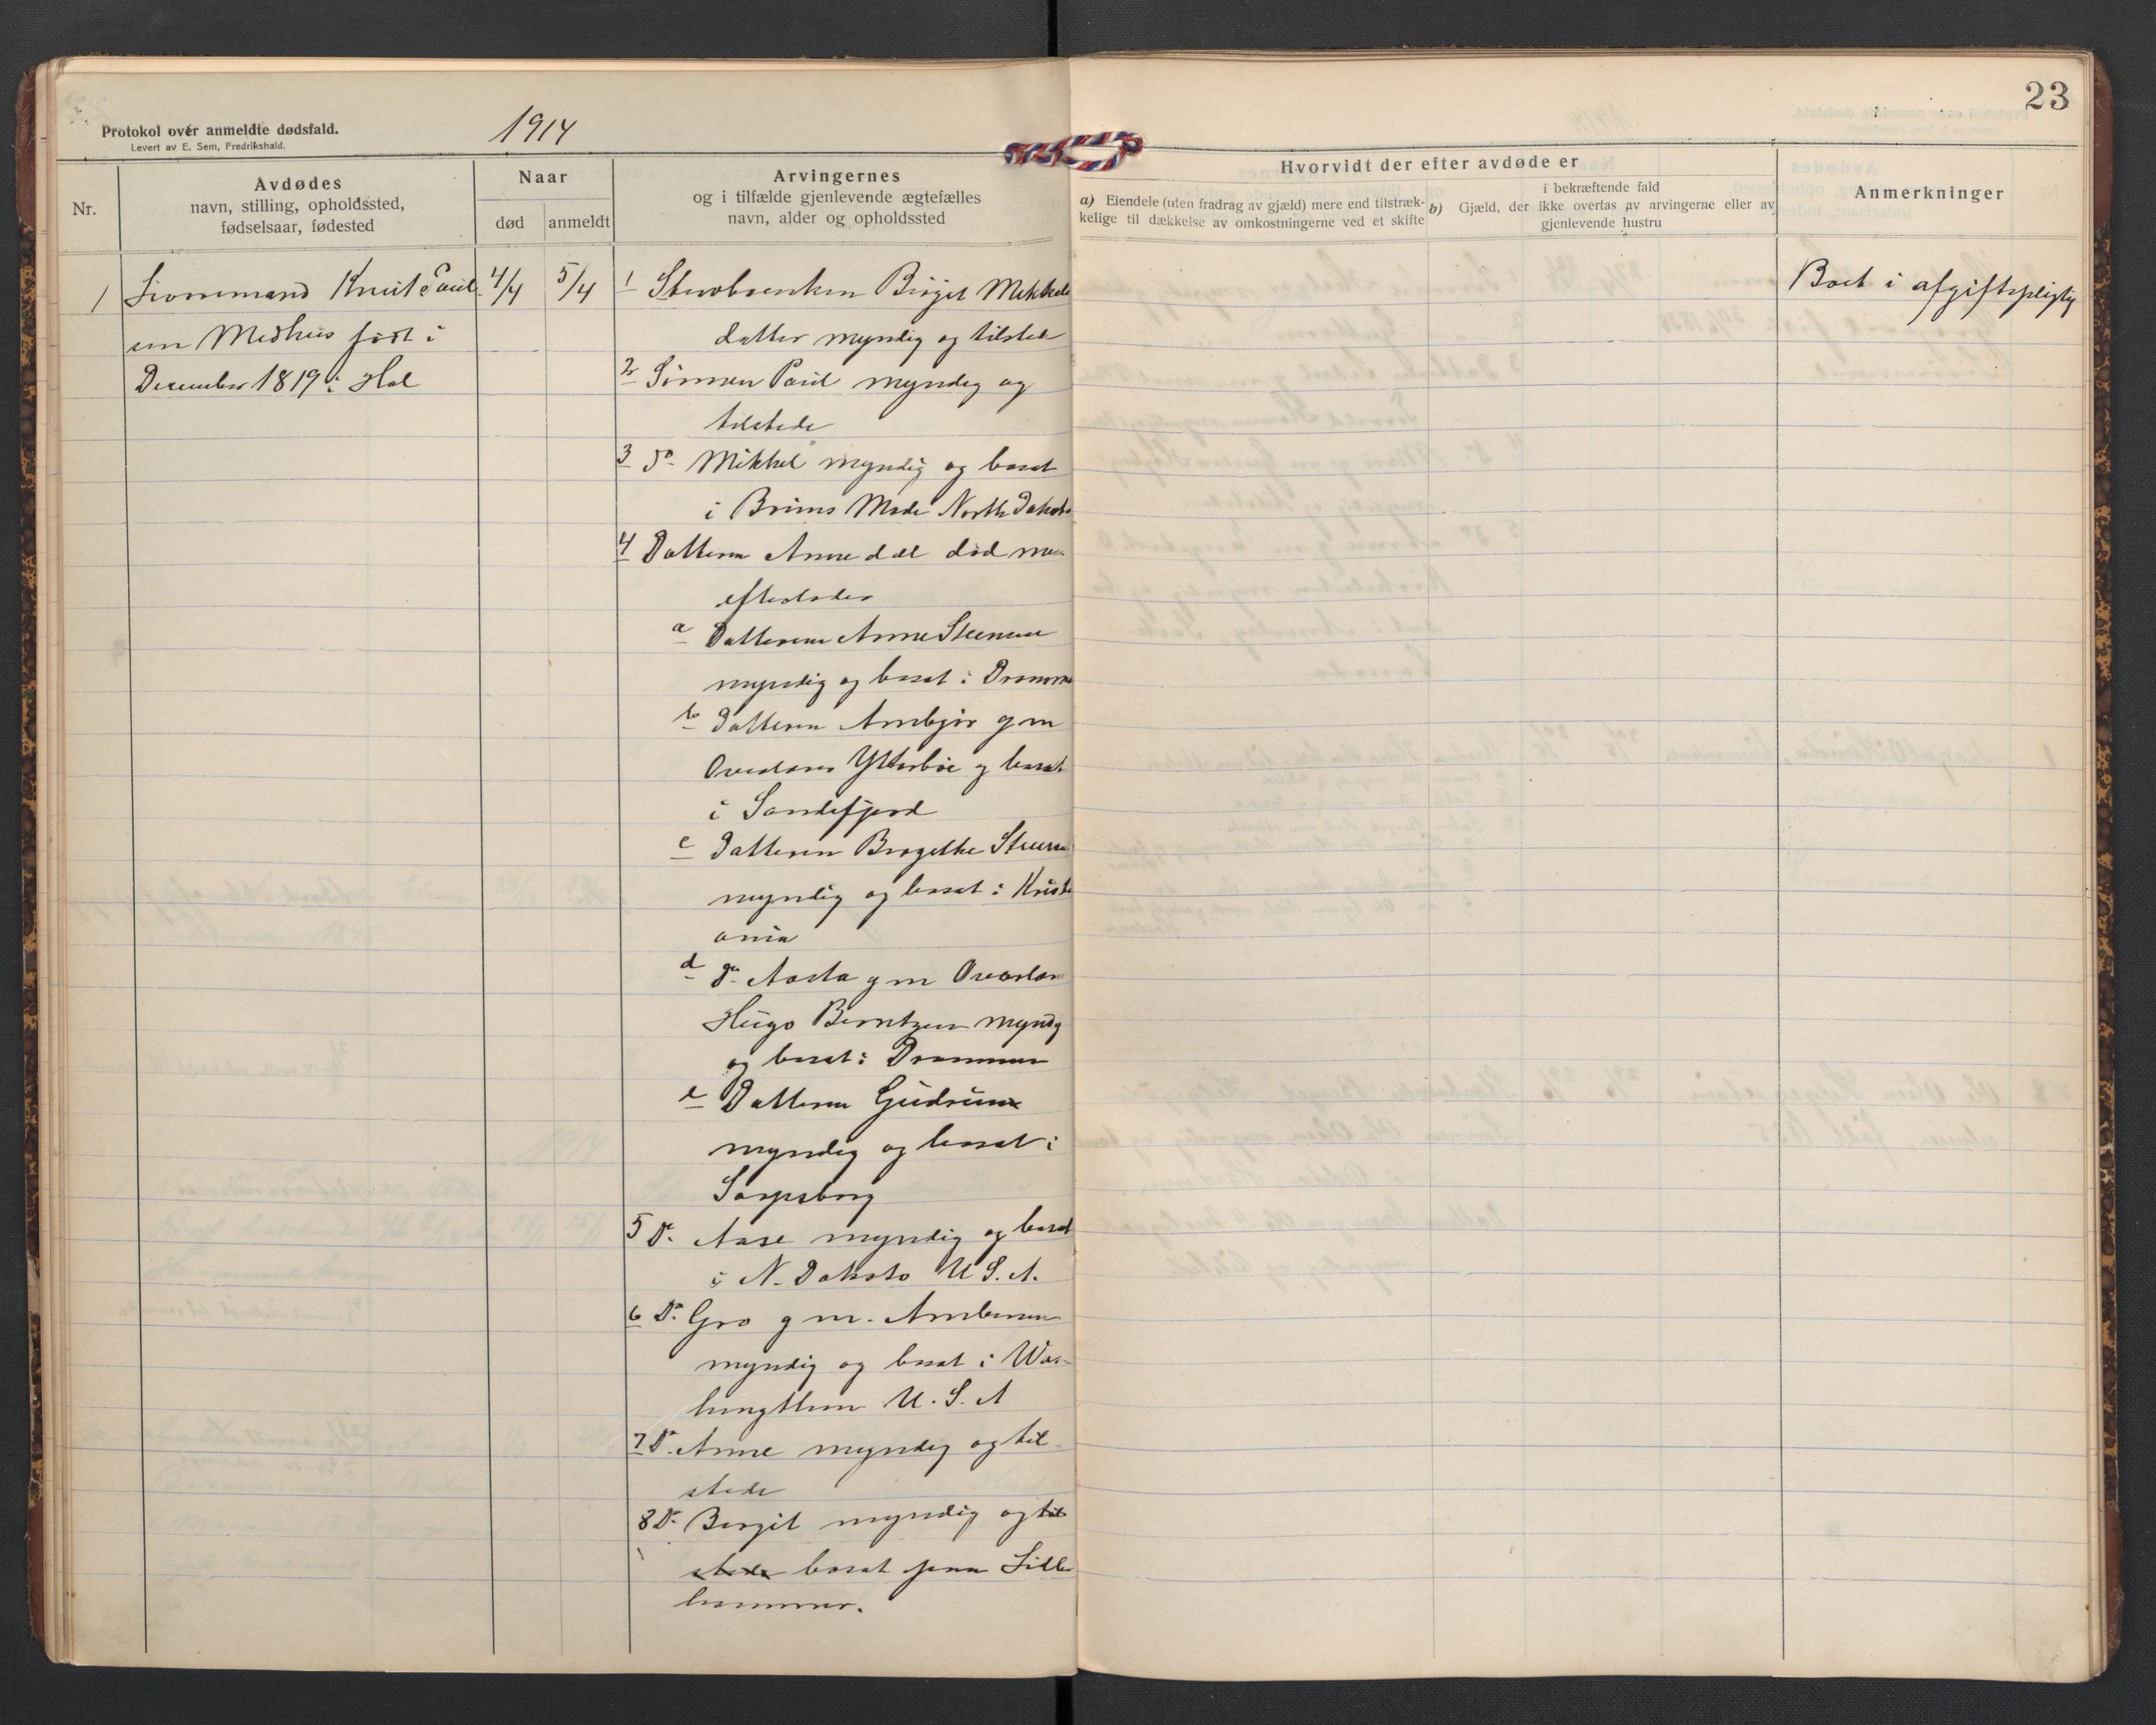 23
Protokol over anmeldte dødsfald.
Levert av E. Sem, Fredrikshald.
1914
Nr.
Avdødes
navn, stilling, opholdssted,
fødselsaar, fødested
Naar
død
anmeldt
Arvingernes
og i tilfælde gjenlevende ægtefælles
navn, alder og opholdssted
Hvorvidt der efter avdøde er
a) Eiendele (uten fradrag av gjæld) mere end tilstræk-
kelige til dækkelse av omkostningerne ved et skifte
b) Gjæld, der i bekræftende fald
ikke overtas av arvingerne eller av
gjenlevende hustru
Anmerkninger
1
Livøremand Knut Paul
sen Medhus født i
December 1819 i Hol
4/4
5/4
1 Stervboenken Birgit Mikkels
datter myndig og tilsted
2 Sønnen Paul myndig og
tilstede
3 Do Mikkel myndig og bosat
i Brims Made North Dakota
4 Datteren Anne død
efterlader
a Datteren Anne Steensen
myndig og bosat i Dramme
b Datteren Ambjør g m
Overlærer Ytterbøe og bosat
i Sandefjord
c Datteren Bragethe Steense
myndig og bosat i Kristi
ania
d Do Aasta g m Overlær
Hugo Berntzen myndig
og bosat i Drammen
e Datteren Gudrun
myndig og bosat i
Sarpsborg
5 Do Aase myndig og bosat
i N. Dakota U S. A.
6 Do Gro g m. Ambensen
myndig og bosat i Was-
hingthon U. S. A
7 Do Anne myndig og til
stede
8 Do Bergit myndig og til
stede bosat paa Lille
hammer.
Boet i afgiftspligtig